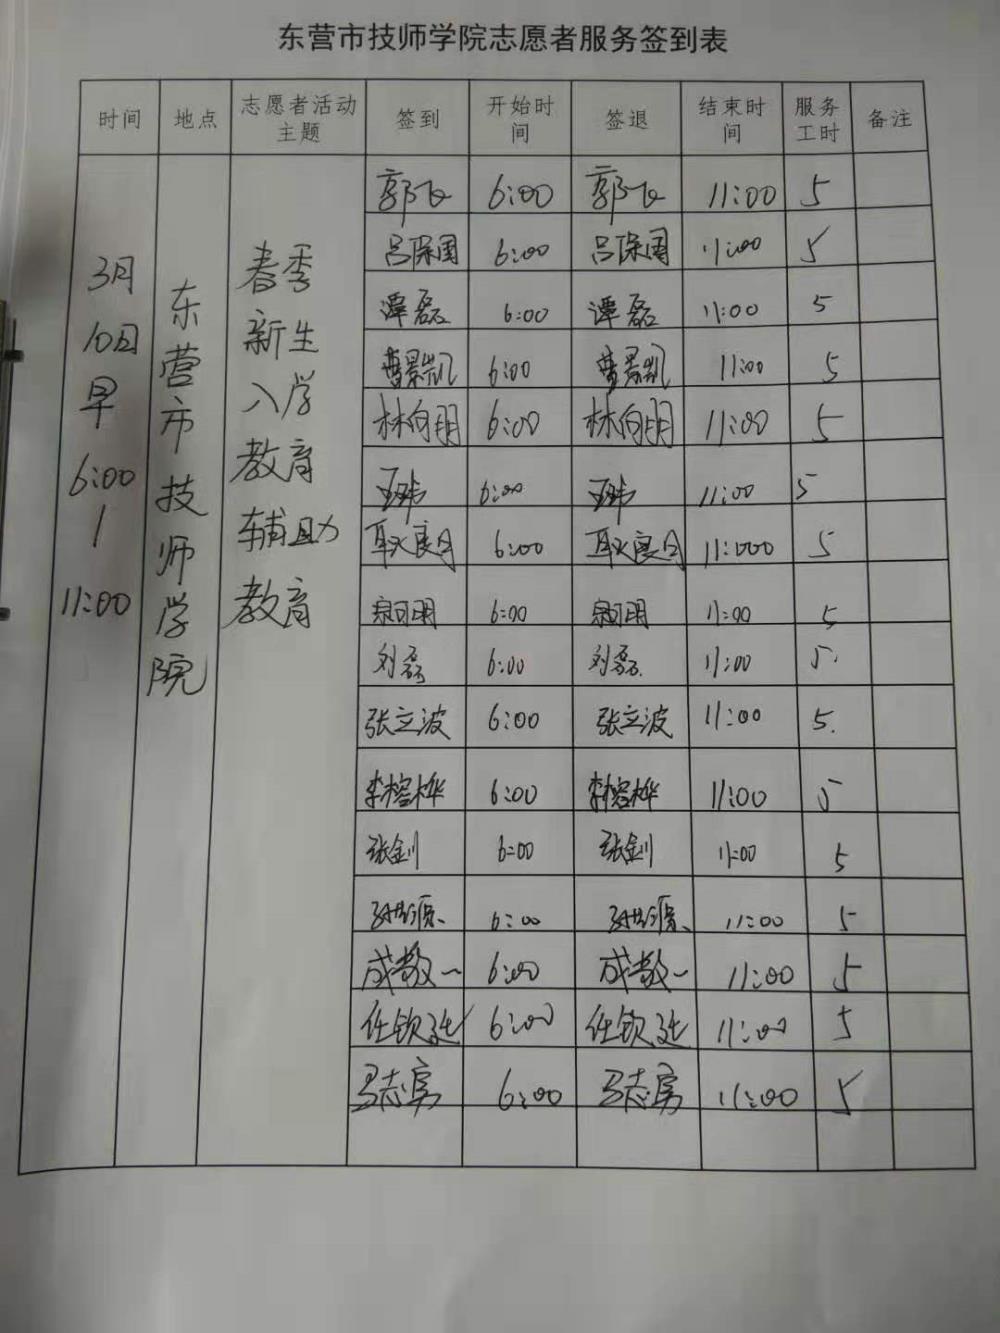 东营市技师学院志愿者服务签到表
时间 地点 志愿者活动主题 签到 开始时间 签退 结束时间 服务工时 备注
3月10日早6:00 | 11:00
东营市技师学院
春季新生入学教育辅助教育
郭飞 6:00 郭飞 11:00 5
吕保国 6:00 吕保国 11:00 5
谭磊 6:00 谭磊 11:00 5
曹景凯 6:00 曹景凯 11:00 5
林向明 6:00 林向明 11:00 5
王玮 6:00 王玮 11:00 5
6:00 11:000 5
6:00 11:00 5
刘磊 6:00 刘磊 11:00 5.
张立波 6:00 张立波 11:00 5.
李榕桦 6:00 李榕桦 11:00 5
张剑 6:00 张剑 11:00 5
6:00 11:00 5
成教一 6:00 成教一 11:00 5
任钦廷 6:00 任钦廷 11:00 5
马志房 6:00 马志房 11:00 5